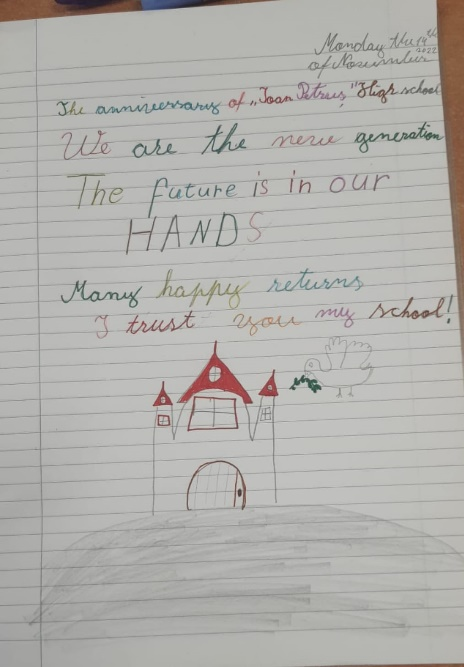 Monday the 14th
of November 2022
The anniversary of „Ioan Petruș" High school
We are the new generation
The future is in our
HANDS
Many happy returns
I trust you my school!